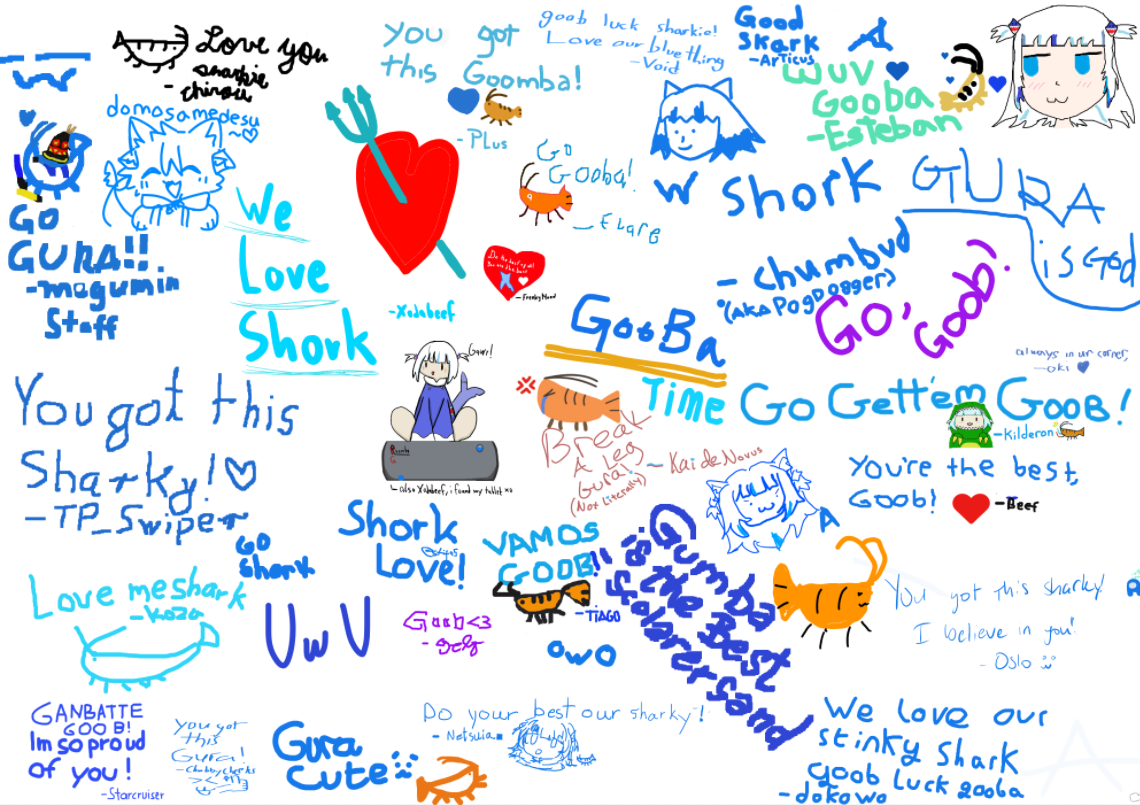 Love you
sharkie
- chirou
You got
this Goomba!
- PLus
goob luck sharkie!
Love our blue thing
- Void
Good
Shark
- Articus
WUV
Gooba
- Esteban
domosamedesu
~♡
GO
GURA!!
- megumin
Staff
We
Love
Shork
- Xodabeef
GO
GOOBA!
- Flare
Do the best of all
You are the best
W SHORK
- Chumbud
(AKA PogDogger)
GURA
is God
GO, GOOB!
GooBa
Time
Gawr!
Roomba
- also Xodabeef, i found my tablet xo
Break
A Leg
Gura!
(Not Literally)
~ Kai de Novus
always in ur corner,
- oki
Go Gett'em GOOB!
- Kilderon
You got this
Sharky! ♡
- TP_Swiper
YOU're the best,
GOOB!
- Beef
GO
Shork
Shork
Love!
VAMOS
GOOB!!
- TIAGO
Gumba
is the Best
Scaler
A
Love me shark
UwU
Goob<3
OwO
You got this sharky!
I believe in you!
- Oslo
GANBATTE
GOOB!
Im so proud
of you!
- Starcruiser
You got
this
Gura!
- Chubbycheeks
Gura
cute
Do your best our sharky~!
We love our
stinky shark
goob luck gooba
- dokowo